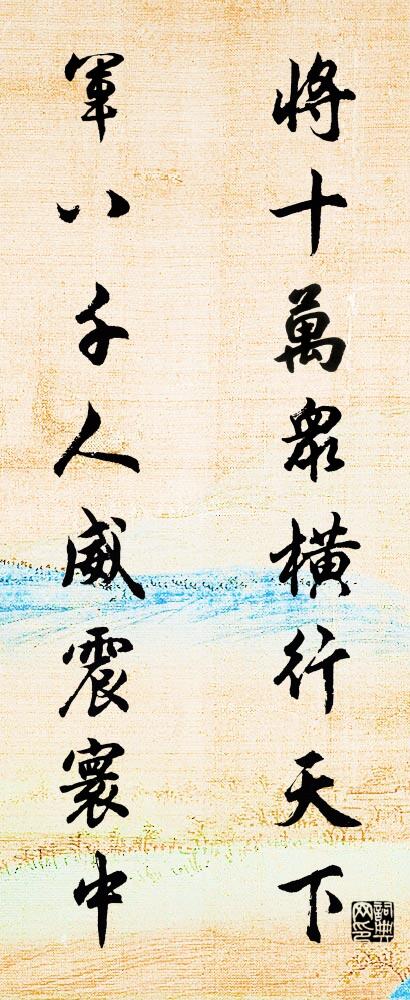 將十萬眾橫行天下
軍八千人威震寰中
詞典
网印